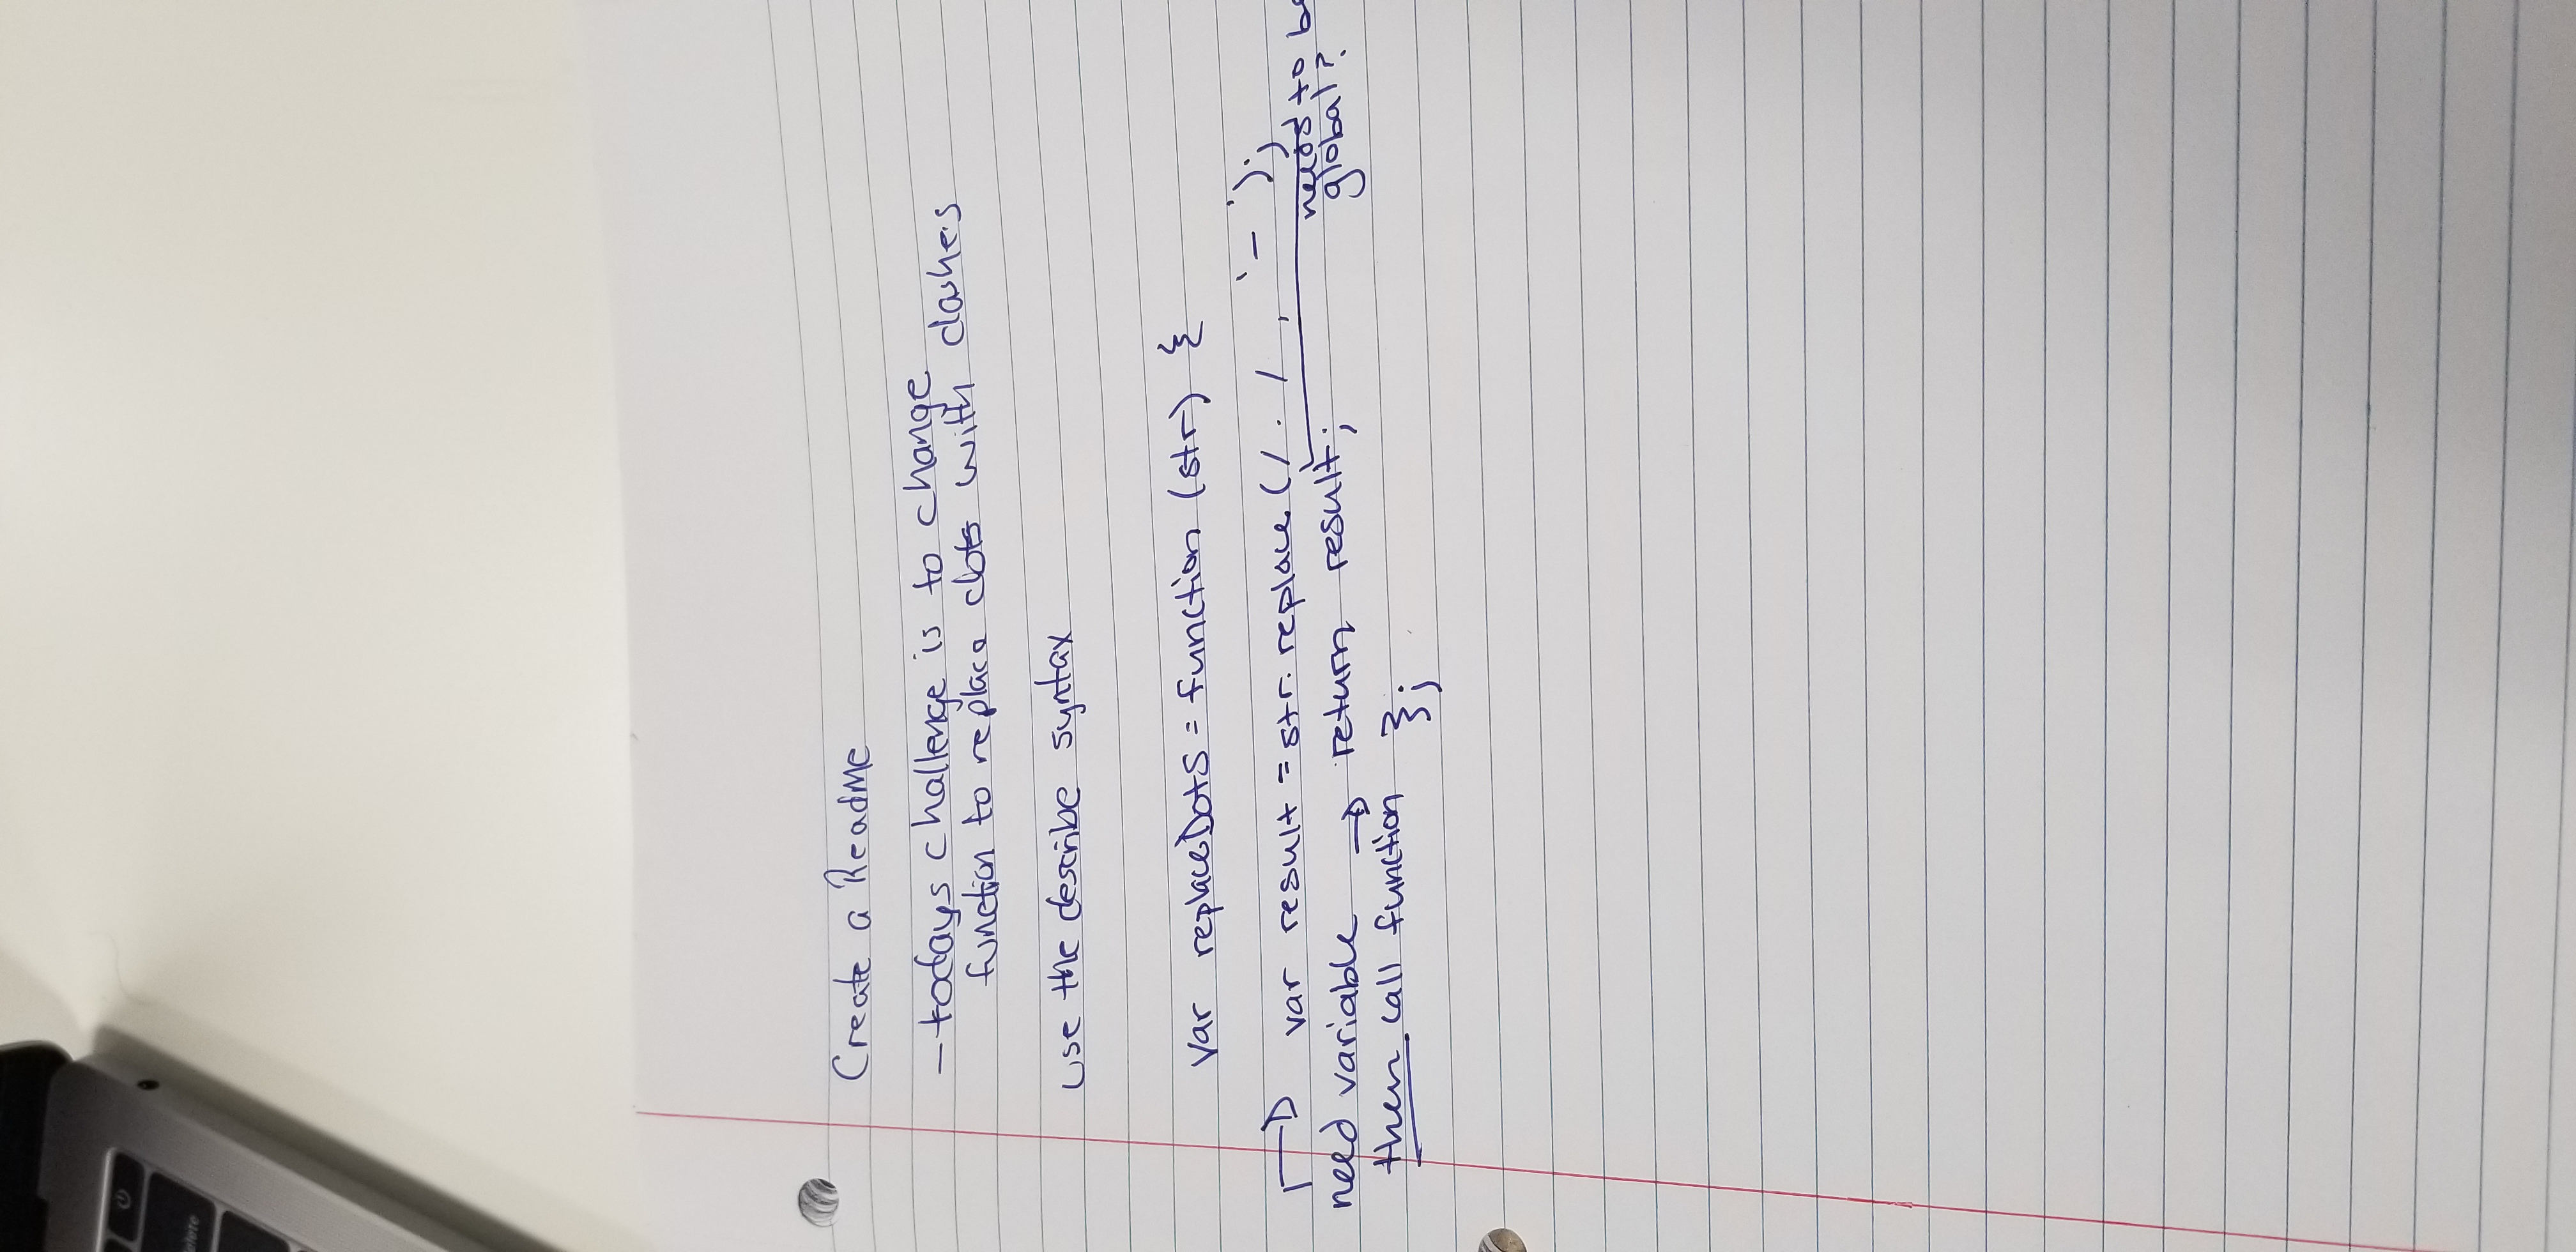 elete
Create a ReadMe
- todays challenge is to change
function to replace dots with dashes
use the describe syntax
var replaceDots = function (str) {
var result = str.replace(/./, '-');
needs to be
global?
need variable → return result;
then call function };